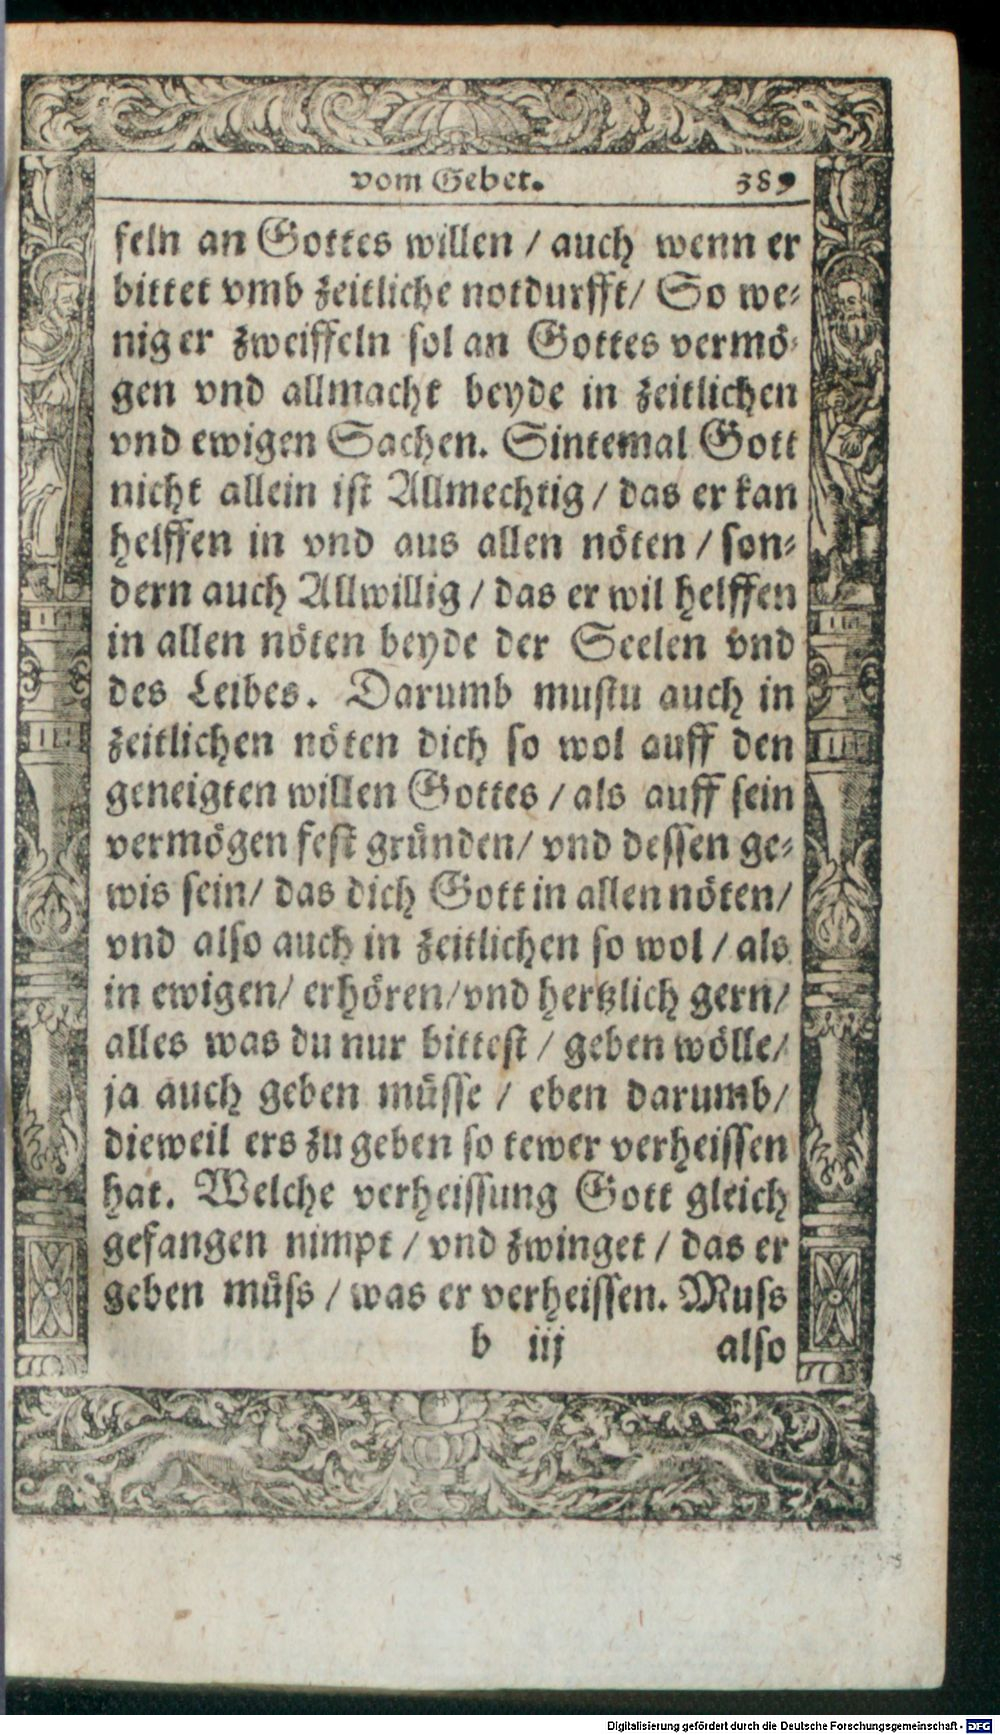 vom Gebet. 389
feln an Gottes willen / auch wenn er
bittet vmb zeitliche notdurfft / So we⸗
nig er zweiffeln sol an Gottes vermö⸗
gen vnd allmacht beyde in zeitlichen
vnd ewigen Sachen. Sintemal Gott
nicht allein ist Allmechtig / das er kan
helffen in vnd aus allen nöten / son⸗
dern auch Allwillig / das er wil helffen
in allen nöten beyde der Seelen vnd
des Leibes. Darumb mustu auch in
zeitlichen nöten dich so wol auff den
geneigten willen Gottes / als auff sein
vermögen fest gründen / vnd dessen ge⸗
wis sein / das dich Gott in allen nöten /
vnd also auch in zeitlichen so wol / als
in ewigen / erhören / vnd hertzlich gern /
alles was du nur bittest / geben wölle /
ja auch geben müsse / eben darumb /
dieweil ers zu geben so tewer verheissen
hat. Welche verheissung Gott gleich
gefangen nimpt / vnd zwinget / das er
geben müss / was er verheissen. Muss
b iij also
Digitalisierung gefördert durch die Deutsche Forschungsgemeinschaft - DFG